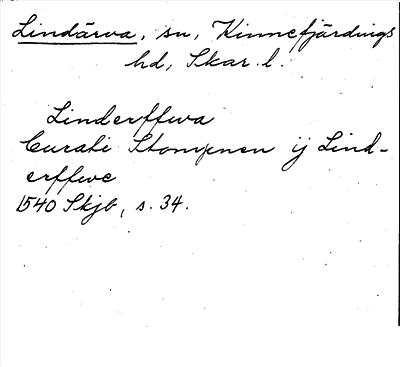 Lindärva, sn, Kinnefjärdings
hd, Skar. l.
Linderffwa
Curati Stompnen ij Lind-
erffwe
1540 Skjb, s. 34.